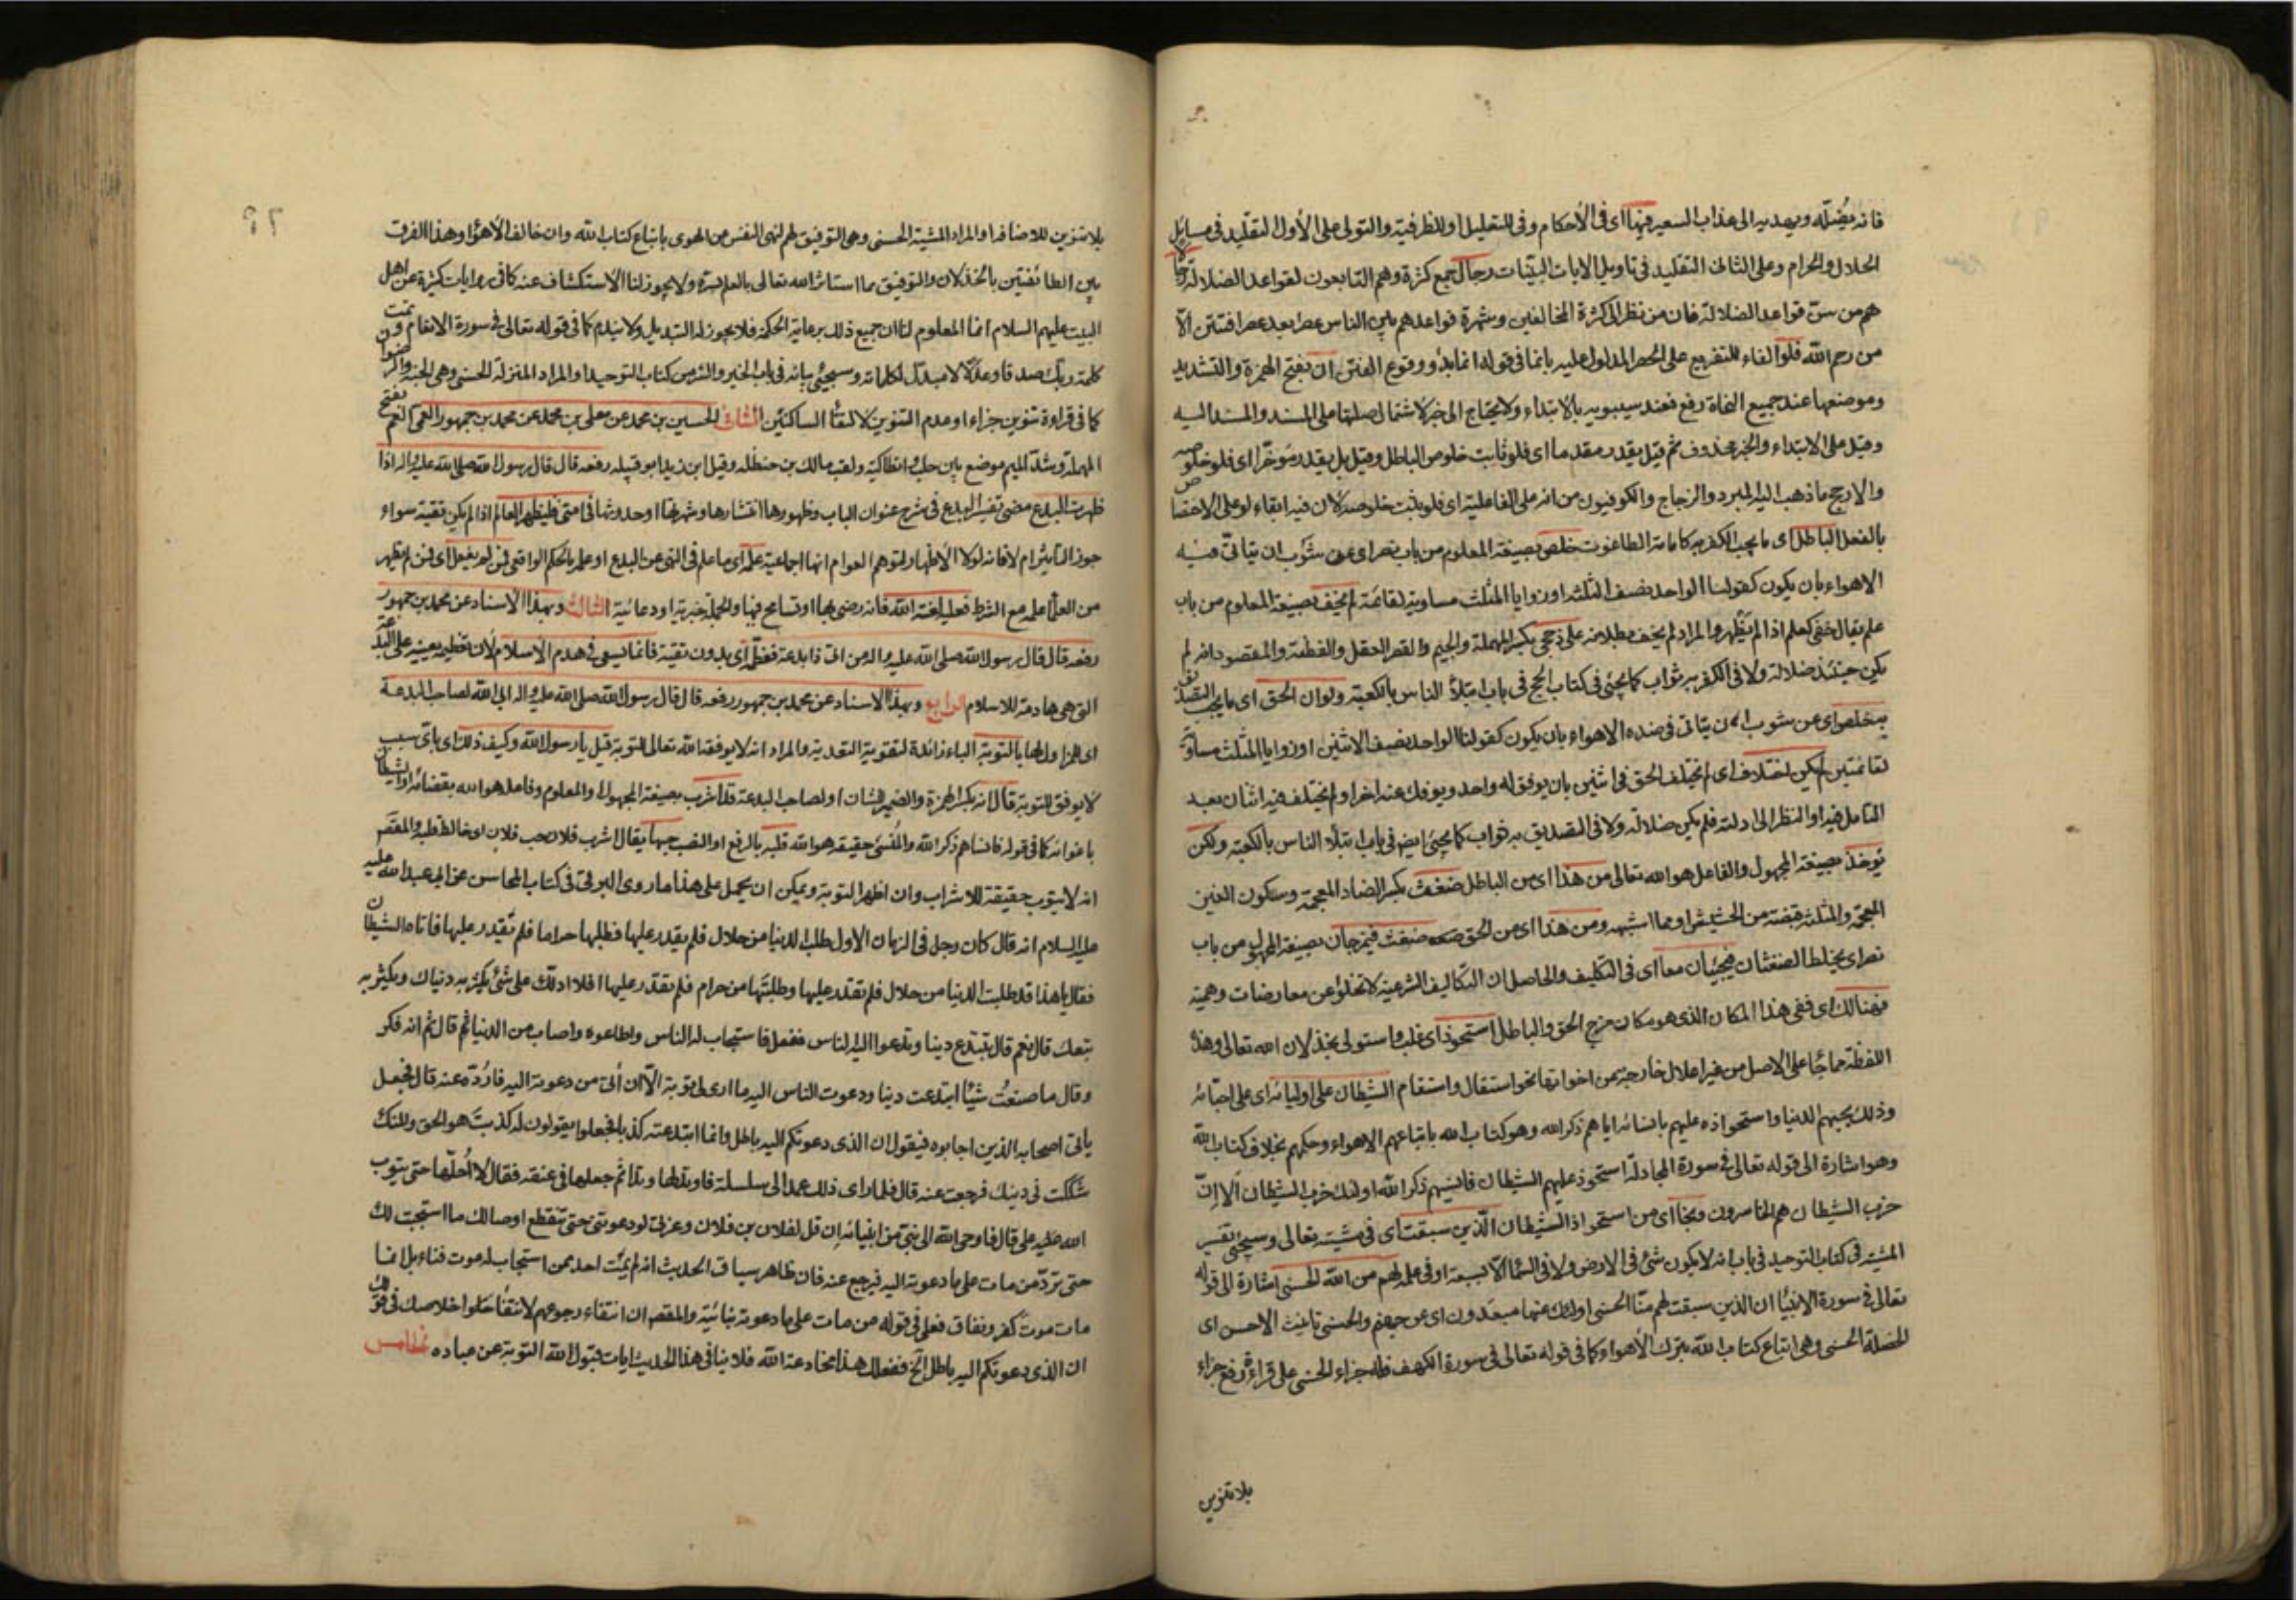 فانه يُضلّه ويهديه الى عذاب السعير فيها اى فى الأحكام وفى للتعليل او للظرفية والتولى على الأول التقليد فى مسائل
الحلال والحرام وعلى الثانى التقليد فى تاويل الايات البيّنات رجال جمع كثرة وهم التابعون لقواعد الضلالة رجالا
هم من سنّ قواعد الضلالة فان من نظر الى كثرة المخالفين وشهرة قواعدهم بين الناس عصرا بعد عصر افتتن الّا
من رحم الله فلو الفاء للتفريع على الحصر المدلول عليه بانما فى قوله انما بدؤ وقوع الفتن ان بفتح الهمزة والتشديد
وموضعها عند جميع النحاة رفع فعند سيبويه بالابتداء ولا يحتاج الى خبر لاشتمال صلتها على المسند والمسند اليه
وقيل على الابتداء والخبر محذوف ثم قيل يقدر مقدما اى فلو ثابت خلوص الباطل وقيل بل يقدر مؤخّرا اى فلو خلوصه
والارجح ما ذهب اليه المبرد والزجاج والكوفيون من انه على الفاعلية اى فلو ثبت خلوصه لان فيه ابقاء لو على الاختصاص
بالفعل الباطل اى ما يجب الكفر به كامامة الطاغوت خلص بصيغة المعلوم من باب نصر اى عن شَوب ان يتاتى فيه
الاهواء بان يكون كقولنا الواحد نصف الثلثة او زوايا المثلث مساوية لقائمة لم يخف بصيغة المعلوم من باب
علم يقال خفى كعلم اذا لم يظهر والمراد لم يخف بطلانه على ذى حجى بكسر المهملة والجيم والقصر العقل والفطنة والمقصود انه لم
يكن حينئذ ضلالة ولا فى الكفر به ثواب كما يجئ فى كتاب الحج فى باب ابتلاء الناس بالكعبة ولو ان الحق اى ما يجب التصديق به
خلص اى عن شوب ان يتاتى فى ضده الاهواء بان يكون كقولنا الواحد نصف الاثنين او زوايا المثلث مساوية
لقائمتين لم يكن اختلاف اى لم يختلف الحق فى اثنين بان يوفق له واحد ويوفك عنه اخر او لم يختلف فيه اثنان بعد
التامل فيه او النظر الى ادلته فلم يكن ضلالة ولا فى التصديق به ثواب كما يجئ ايضا فى باب ابتلاء الناس بالكعبة ولكن
يؤخذ بصيغة المجهول والفاعل هو الله تعالى من هذا اى من الباطل ضغث بكسر الضاد المعجمة وسكون الغين
المعجمة والمثلثة قبضة من الحشيش او مما اشبهه ومن هذا اى من الحق ضغث فيمزجان بصيغة المجهول من باب
نصر اى يخلط الضغثان فيجيئان معا اى فى التكليف والحاصل ان التكاليف الشرعية لا تخلو عن معارضات وهمية
فهنالك اى ففى هذا المكان الذى هو مكان مزج الحق والباطل استحوذ اى غلب واستولى بخذلان الله تعالى وهذه
اللفظة مما جاء على الاصل من غير اعلال خارجة عن اخواتها نحو استقال واستقام الشيطان على اوليائه اى على احبّائه
وذلك بحبهم الدنيا واستحواذه عليهم بانسائه اياهم ذكر الله وهو كتاب الله باتباعهم الاهواء وحكمهم بخلاف كتاب الله
وهو اشارة الى قوله تعالى فى سورة المجادلة استحوذ عليهم الشيطان فانسيهم ذكر الله اولئك حزب الشيطان ألا إنّ
حزب الشيطان هم الخاسرون ونجا اى من استحواذ الشيطان الّذين سبقت اى فى مشيته تعالى وسيجئ تفسير
المشية فى كتاب التوحيد فى باب انه لا يكون شئ فى الارض ولا فى السماء الا بسبعة او فى علمه لهم من الله الحسنى اشارة الى قوله
تعالى فى سورة الانبياء ان الذين سبقت لهم منّا الحسنى اولئك عنها مبعدون اى عن جهنم والحسنى تانيث الاحسن اى
الخصلة الحسنى وهى اتباع كتاب الله بترك الأهواء كما فى قوله تعالى فى سورة الكهف فله جزاء الحسنى على قراءة رفع جزاء
بلا تنوين
٦٢
بلا تنوين للاضافة او المراد المشية الحسنى وهى التوفيق لهم لنهى النفس عن الهوى باتباع كتاب الله وان خالف الأهواء وهذا الفرق
بين الطائفتين بالخذلان والتوفيق مما استاثر الله تعالى بالعلم بسرّه ولا يجوز لنا الاستكشاف عنه كما فى روايات كثيرة عن اهل
البيت عليهم السلام انما المعلوم لنا ان جميع ذلك برعاية الحكمة فلا يجوز له التبديل ولا يندم كما فى قوله تعالى فى سورة الانعام وتمت
كلمة ربك صدقا وعدلًا لا مبدّل لكلماته وسيجئ بيانه فى باب الخير والشر من كتاب التوحيد او المراد المنزلة الحسنى وهى الجنة
كما فى قراءة تنوين جزاء او عدم التنوين لالتقاء الساكنين الثانى الحسين بن محمد عن معلى بن محمد عن محمد بن جمهور العمى بفتح
المهملة وشدّ الميم موضع بين حلب وانطاكية ولقب مالك بن حنظلة وقيل ابن زيد ابو قبيلة رفعه قال قال رسول الله صلى الله عليه واله اذا
ظهرت البدع مضى تفسير البدع فى شرح عنوان الباب وظهورها انتشارها وشهرتها او حدوثها فى امتى فليظهر العالم اذا لم يكن تقية سواء
جوز التاثير ام لا فانه لولا الاظهار لتوهم العوام انها اجماعية علمه اى ما علم فى النهى عن البدع او علمه بالحكم الواقعى فمن لم يفعل اى فمن لم يظهر
من العلماء علمه مع الشرط فعليه لعنة الله فانه رضى بها او تسامح فيها والجملة خبرية او دعائية الثالث وبهذا الاسناد عن محمد بن جمهور
رفعه قال قال رسول الله صلى الله عليه واله من اتى ذا بدعة فعظّمه اى بدون تقية فانما يسعى فى هدم الاسلام لان تعظيمه يعينه على البدعة
التى هى هادمة للاسلام الرابع وبهذا الاسناد عن محمد بن جمهور رفعه قال قال رسول الله صلى الله عليه واله ابى الله لصاحب البدعة
بالتوبة الباء زائدة لتقوية التعدية والمراد انه لا يوفقه الله تعالى للتوبة قيل يا رسول الله وكيف ذلك اى باى سبب
لا يوفق للتوبة قال انه بكسر الهمزة والضمير للشان او لصاحب البدعة قد اشرب بصيغة المجهول او المعلوم وفاعله هو الله بقضائه او الشيطان
باغوائه كما فى قوله فانساهم ذكر الله والمُنسى حقيقة هو الله قلبه بالرفع او النصب حبها يقال اشرب فلان حب فلان اى خالط قلبه والمقصود
انه لا يتوب حقيقة للاشراب وان اظهر التوبة ويمكن ان يحمل على هذا ما روى البرقى فى كتاب المحاسن عن ابى عبد الله
عليه السلام انه قال كان رجل فى الزمان الاول طلب الدنيا من حلال فلم يقدر عليها فطلبها حراما فلم يقدر عليها فاتاه الشيطان
فقال يا هذا قد طلبت الدنيا من حلال فلم تقدر عليها وطلبتها من حرام فلم تقدر عليها افلا ادلّك على شئ يكثر به دنياك ويكثر به
تبعك قال نعم قال تبتدع دينا وتدعوا اليه الناس ففعل فاستجاب له الناس واطاعوه واصاب من الدنيا ثم قال ثم انه فكر
وقال ما صنعتُ شيئًا ابتدعت دينا ودعوت الناس اليه ما ارى لى توبة الّا ان آتى من دعوته اليه فاردّه عنه قال فجعل
ياتى اصحابه الذين اجابوه فيقول ان الذى دعوتكم اليه باطل وانما ابتدعته كذبا فجعلوا يقولون له كذبتَ هو الحق ولكنك
شككت فى دينك فرجعت عنه قال فلما راى ذلك عمد الى سلسلة فاوتد لها وتدا ثم جعلها فى عنقه فقال لا احلّها حتى يتوب
الله على قال فاوحى الله الى نبىّ من انبيائه ان قل لفلان بن فلان وعزتى لو دعوتنى حتى تنقطع اوصالك ما استجبت لك
حتى تردّ من مات على ما دعوته اليه فيرجع عنه فان ظاهر سياق الحديث انه لم يمت احد ممن استجاب له موت فناء بل انما
مات موت كفر ونفاق فعلى فى قوله من مات على ما دعوته بنائية والمقصود ان انتفاء رجوعهم لانتفاء خلو اخلاصك فى قولك
ان الذى دعوتكم اليه باطل الخ ففعلك هذا مخادعة الله فلا ينافى هذا الحديث ايات قبول الله التوبة عن عباده الخامس